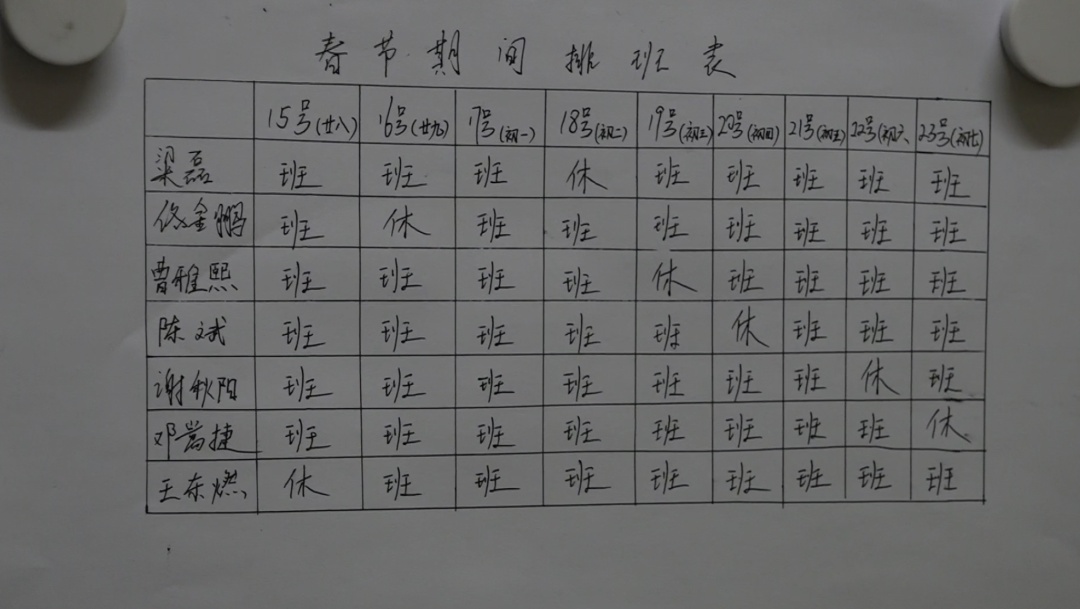 春节期间排班表
15号(廿八) 16号(廿九) 17号(初一) 18号(初二) 19号(初三) 20号(初四) 21号(初五) 22号(初六) 23号(初七)
梁磊 班 班 班 休 班 班 班 班 班
佟金鹏 班 休 班 班 班 班 班 班 班
曹雅熙 班 班 班 班 休 班 班 班 班
陈斌 班 班 班 班 班 休 班 班 班
谢秋阳 班 班 班 班 班 班 班 休 班
邓嵩捷 班 班 班 班 班 班 班 班 休
王东燃 休 班 班 班 班 班 班 班 班